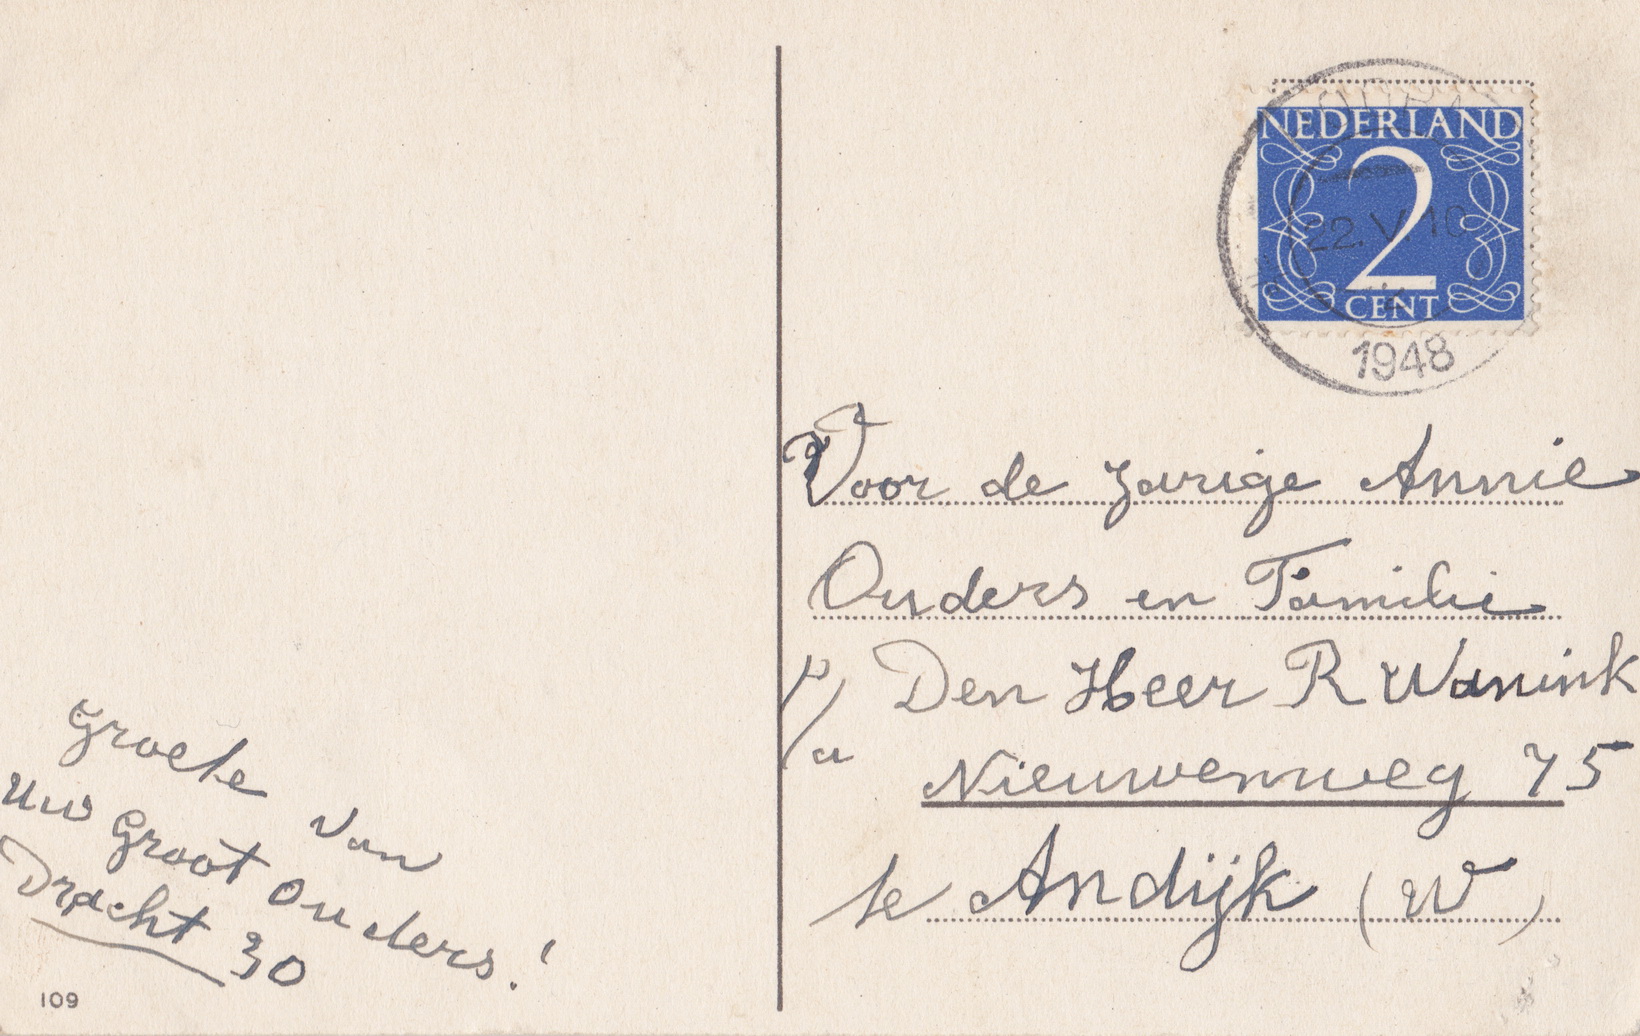 NEDERLAND
2
CENT
22.V.10
1948
Voor de jarige Annie
Ouders en Familie
p/a Den Heer R Wanink
Nieuweweg 75
te Andijk (W)
Groete van
Uw Groot Ouders!
Dracht 30
109